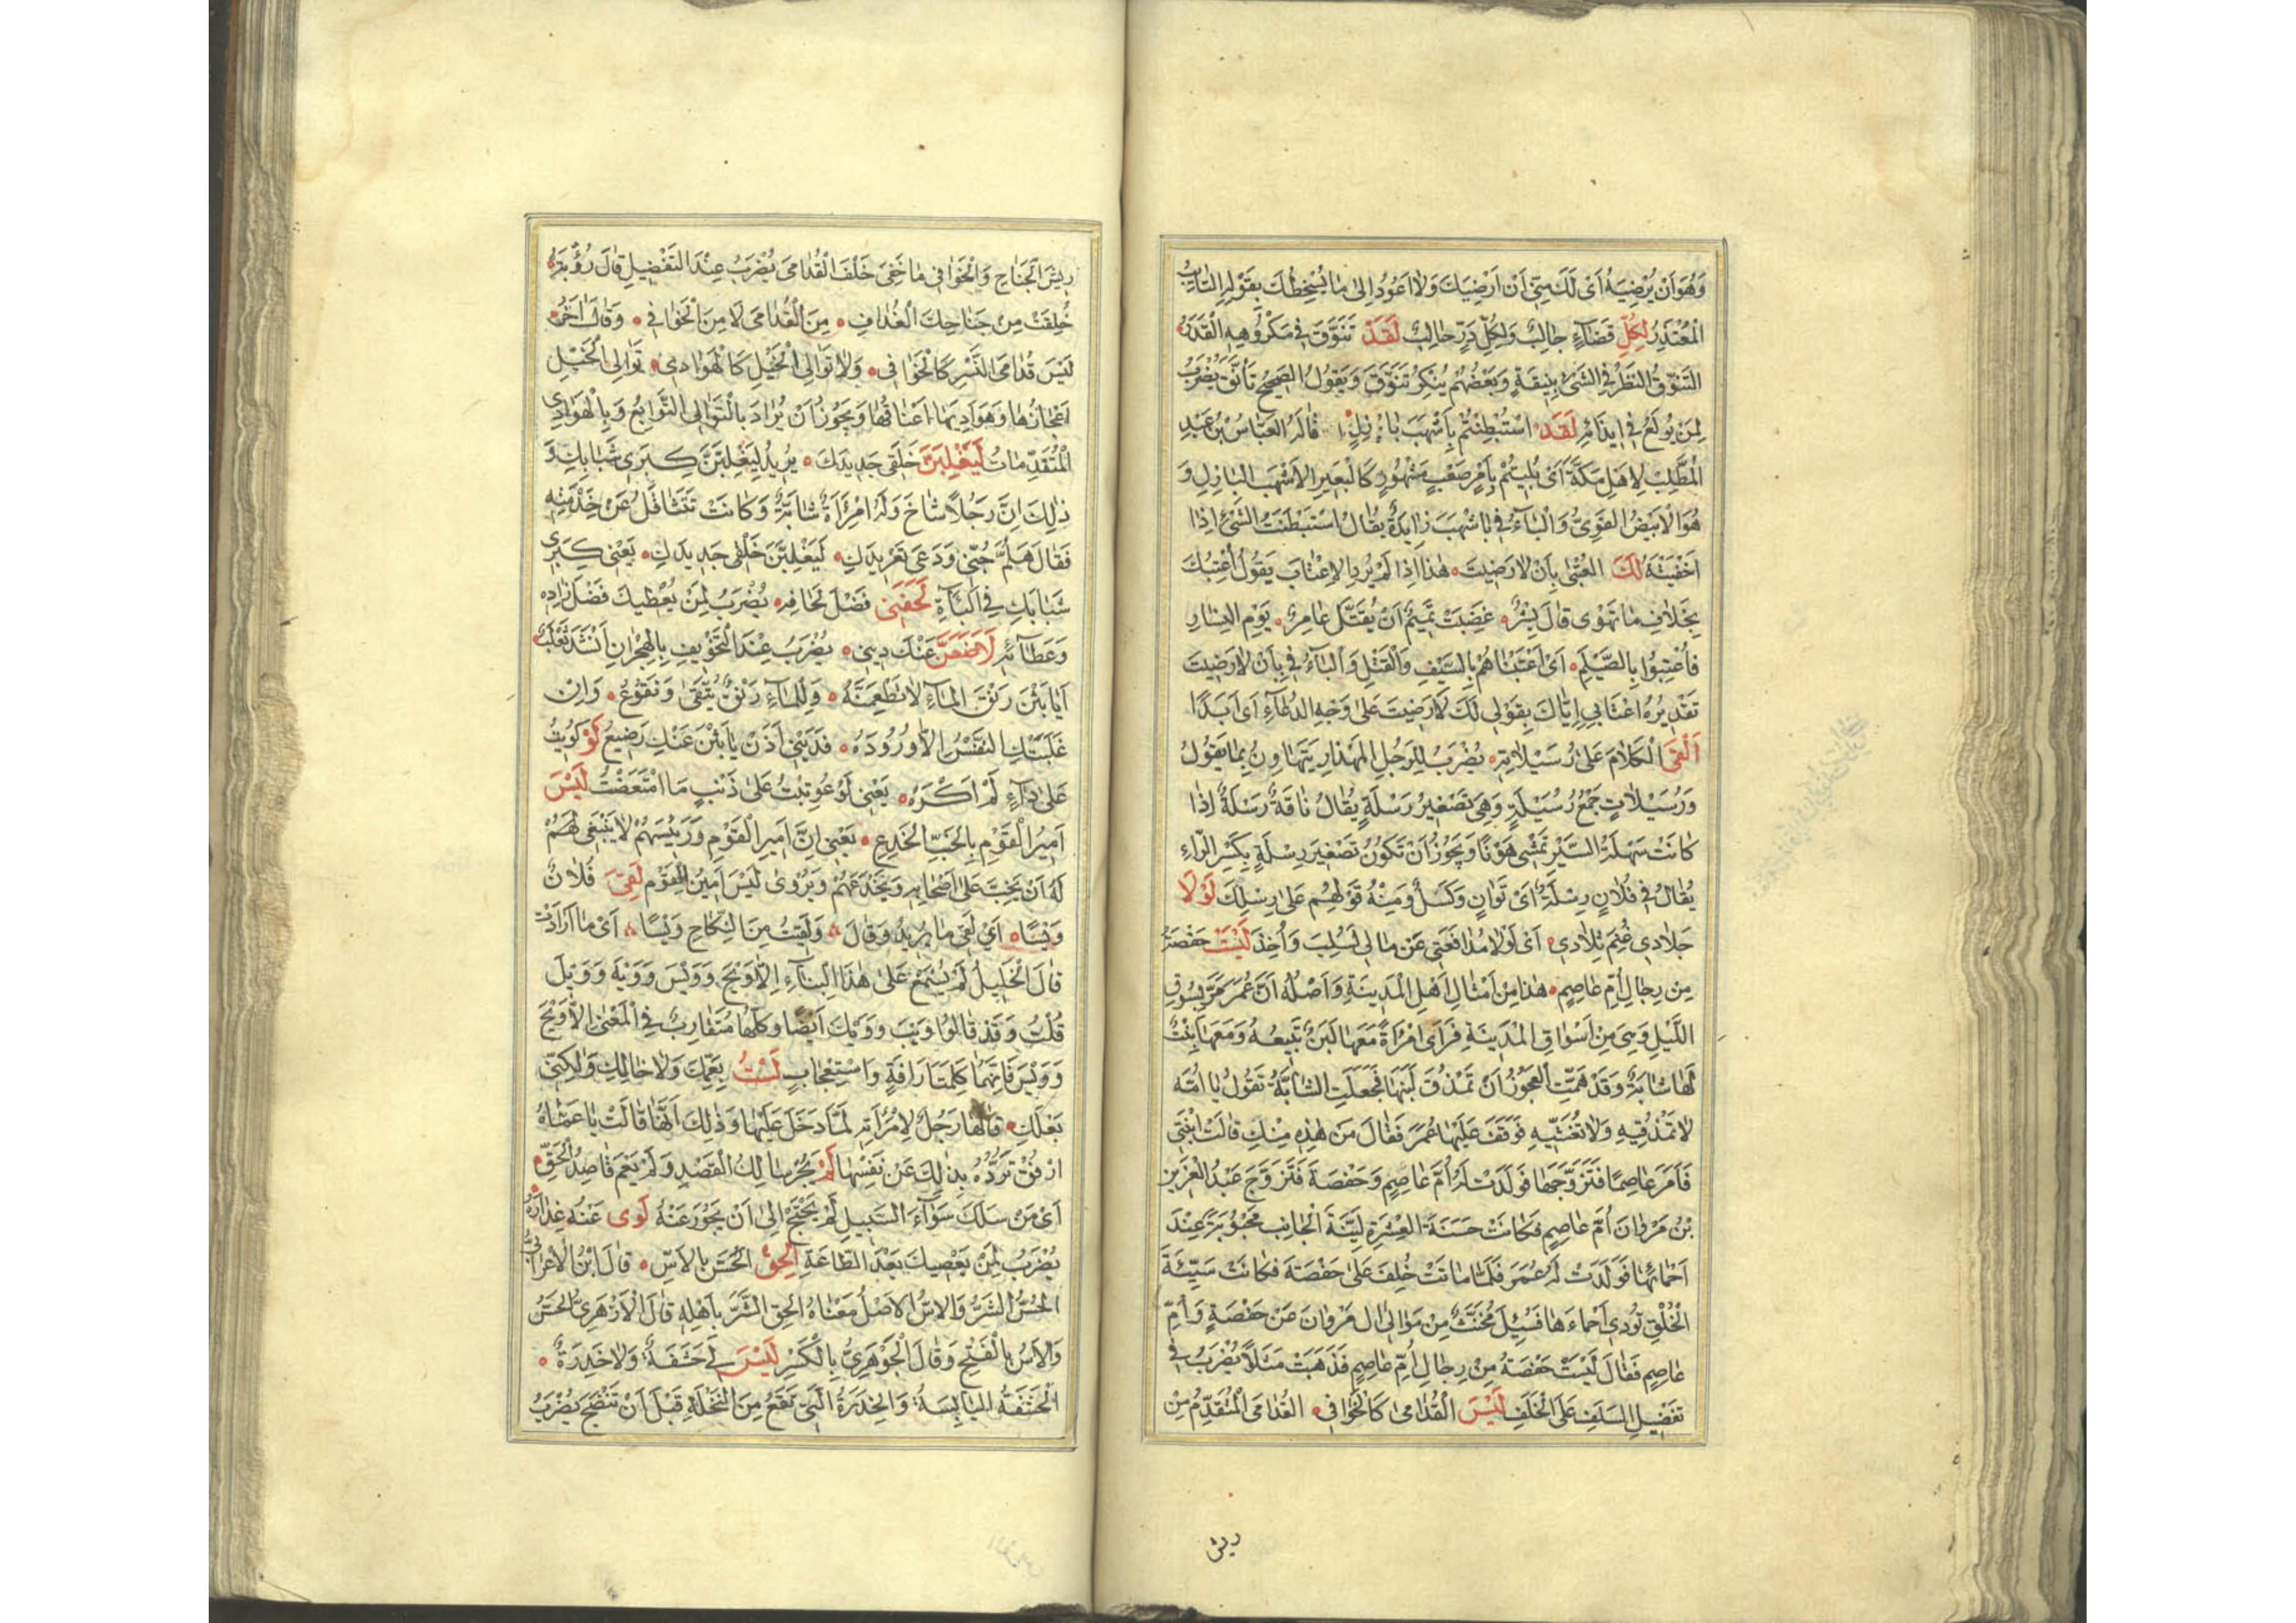 وَهُوَ اَنْ يُرْضِيَهُ اَىْ لَكَ مِنّى اَنْ اَرْضِيَكَ وَلَا اَعُودُ اِلىٰ مَا يُسْخِطُكَ بِقَوْلِهِ التَّائِبُ
الْمُعْتَذِرُ لِكُلِّ قَضَآءٍ جَالِبٌ وَلِكُلِّ دَرٍّ حَالِبٌ لَقَدْ تَنَوَّقَ فى مَكْرُوهِهِ الْقَدَرُ
التَّنَوُّقُ النَّظَرُ فى الشَّىْءِ بِنِيقَةٍ وَبَعْضُهُمْ يُنْكِرُ تَنَوَّقَ وَيَقُولُ الصَّحِيحُ تَأَنَّقَ يُضْرَبُ
لِمَنْ يُولَعُ فى ايذَائِهِ لَقَدِ اسْتُبْطِنْتُمْ بِاَشْهَبَ بَازِلٍ قَالَهُ العَبَّاسُ بْنُ عَبْدِ
الْمُطَّلِبِ لِاَهْلِ مَكَّةَ اَىْ بُلِيتُمْ بِاَمْرٍ صَعْبٍ مَشْهُورٍ كَالْبَعِيرِ الاَشْهَبِ البَازِلِ وَ
هُوَ الْاَبْيَضُ القَوِىُّ وَالْبَآءُ فى بِاَشْهَبَ زَايِدَةٌ يُقَالُ اسْتَبْطَنْتُ الشَّىْءَ اِذَا
اَخْفَيْتَهُ لَكَ العُتْبٰى بِاَنْ لَا رَضِيتَ هٰذَا اِذَا لَمْ يُرِدِ الاِعْتَابَ يَقُولُ اُعْتِبُكَ
بِخِلَافِ مَا تَهْوٰى قَالَ بِشْرٌ غَضِبَتْ تَمِيمٌ اَنْ يُقَتَّلَ عَامِرٌ يَوْمَ النِّسَارِ
فَاُعْتِبُوا بِالصَّيْلَمِ اَىْ اَعْتَبْنَاهُمْ بِالسَّيْفِ وَالْقَتْلِ وَالْبَآءُ فى بِاَنْ لَا رَضِيتَ
تَقْدِيرُهُ اِعْتَابى اِيَّاكَ بِقَوْلى لَكَ لَا رَضِيتَ عَلىٰ وَجْهِ الدُّعَآءِ اَىْ اَبَدًا
اَلْقَى الْكَلَامَ عَلىٰ رُسَيْلَاتِهِ يُضْرَبُ لِلرَّجُلِ المِهْذَارِ يَتَهَاوَنُ بِمَا يَقُولُ
وَرُسَيْلَاتٌ جَمْعُ رُسَيْلَةٍ وَهِىَ تَصْغِيرُ رَسْلَةٍ يُقَالُ نَاقَةٌ رَسْلَةٌ اِذَا
كَانَتْ سَهْلَةَ السَّيْرِ تَمْشى هَوْنًا وَيَجُوزُ اَنْ تَكُونَ تَصْغِيرَ رِسْلَةٍ بِكَسْرِ الرَّاءِ
يُقَالُ فى فُلَانٍ رِسْلَةٌ اَىْ تَوَانٍ وَكَسَلٌ وَمِنْهُ قَوْلُهُمْ عَلىٰ رِسْلِكَ لَوْلَا
جِلَادى غُنِمَ تِلَادى اَىْ لَوْلَا مُدَافَعَتى عَنْ مَالى لَسُلِبَ وَاُخِذَ لَيْسَتْ حَفْصَةُ
مِنْ رِجَالِ اُمِّ عَاصِمٍ هٰذَا مِنْ اَمْثَالِ اَهْلِ الْمَدِينَةِ وَاَصْلُهُ اَنَّ عُمَرَ مَرَّ بِسُوقِ
اللَّيْلِ وَهِىَ مِنْ اَسْوَاقِ الْمَدِينَةِ فَرَاَى امْرَاَةً مَعَهَا لَبَنٌ تَبِيعُهُ وَمَعَهَا بِنْتٌ
لَهَا شَابَّةٌ وَقَدْ هَمَّتِ الْعَجُوزُ اَنْ تَمْذُقَ لَبَنَهَا فَجَعَلَتِ الشَّابَّةُ تَقُولُ يَا اُمَّهْ
لَا تَمْذُقِيهِ وَلَا تَغُشِّيهِ فَوَقَفَ عَلَيْهَا عُمَرُ فَقَالَ مَنْ هٰذِهِ مِنْكِ قَالَتْ ابْنَتى
فَاَمَرَ عَاصِمًا فَتَزَوَّجَهَا فَوَلَدَتْ لَهُ اُمَّ عَاصِمٍ وَحَفْصَةَ فَتَزَوَّجَ عَبْدُ الْعَزِيزِ
بْنُ مَرْوَانَ اُمَّ عَاصِمٍ فَكَانَتْ حَسَنَةَ العِشْرَةِ لَيِّنَةَ الْجَانِبِ مَحْبُوبَةً عِنْدَ
اَحْمَائِهَا فَوَلَدَتْ لَهُ عُمَرَ فَلَمَّا مَاتَتْ خُلِفَ عَلىٰ حَفْصَةَ فَكَانَتْ سَيِّئَةَ
الْخُلْقِ تُؤْدِى اَحْمَاءَهَا فَسُئِلَ مُخَنَّثٌ مِنْ مَوَالى آلِ مَرْوَانَ عَنْ حَفْصَةَ وَاُمِّ
عَاصِمٍ فَقَالَ لَيْسَتْ حَفْصَةُ مِنْ رِجَالِ اُمِّ عَاصِمٍ فَذَهَبَتْ مَثَلًا يُضْرَبُ فى
تَفْضِيلِ السَّلَفِ عَلَى الْخَلَفِ لَيْسَ الْقُدَامىٰ كَالْخَوَافى القُدَامَى الْمُتَقَدِّمُ مِنْ
ريش
رِيشِ الْجَنَاحِ وَالْخَوَافى مَا خَفِىَ خَلْفَ الْقُدَامىٰ يُضْرَبُ عِنْدَ التَّفْضِيلِ قَالَ رُؤْبَةُ
خُلِقْتَ مِنْ جَنَاحِكَ الْغُدَافِ مِنَ الْقُدَامىٰ لَا مِنَ الْخَوَافى وَقَالَ آخَرُ
لَيْسَ قُدَامَى النَّسْرِ كَالْخَوَافى وَلَا تَوَالِى الْخَيْلِ كَالْهَوَادى تَوَالِى الْخَيْلِ
اَعْجَازُهَا وَهَوَادِيهَا اَعْنَاقُهَا وَيَجُوزُ اَنْ يُرَادَ بِالتَّوَالِى التَّوَابِعُ وَبِالْهَوَادِى
الْمُتَقَدِّمَاتُ لَيَغْلِبَنَّ خَلَقى جَدِيدَكِ يُرِيدُ لَيَغْلِبَنَّ كِبَرى شَبَابَكِ وَ
ذٰلِكَ اِنَّ رَجُلًا شَاخَ وَلَهُ امْرَاَةٌ شَابَّةٌ وَكَانَتْ تَتَثَاقَلُ عَنْ خِدْمَتِهِ
فَقَالَ هَلُمَّ حُبّى وَدَعى تَعْرِيدَكِ لَيَغْلِبَنَّ خَلَقى جَدِيدَكِ يَعْنى كِبَرى
شَبَابَكِ فى الْبَآءَةِ لَحَفَنى فَضْلَ لِحَافِهِ يُضْرَبُ لِمَنْ يُعْطِيكَ فَضْلَ زَادِهِ
وَعَطَآئِهِ لَاَضَعَنَّ عَنْكَ دِينى يُضْرَبُ عِنْدَ التَّخْوِيفِ بِالْهِجْرَانِ اَنْشَدَ ثَعْلَبٌ
اَيَا بَثْنَ رَنْقَ الْمَآءِ لَا تَطْعَمِنَّهُ وَلِلْمَآءِ رَنْقٌ يُتَّقىٰ وَنَقُوعُ وَاِنْ
غَلَبَتْكِ النَّفْسُ اِلَّا وُرُودَهُ فَدَيْنى اَذَنْ يَا بَثْنَ عَنْكِ رَضِيعُ لَوْ كُوِيتُ
عَلىٰ دَآءٍ لَمْ اَكْرَهْ يَعْنى لَوْ عُوتِبْتُ عَلىٰ ذَنْبٍ مَا امْتَعَضْتُ لَيْسَ
اَمِيرُ الْقَوْمِ بِالْخَبِّ الْخَدِعِ يَعْنى اِنَّ اَمِيرَ الْقَوْمِ وَرَئِيسَهُمْ لَا يَنْبَغى لَهُمْ
لَهُ اَنْ يَخِبَّ عَلىٰ اَصْحَابِهِ وَيَخْدَعَهُمْ وَيُرْوىٰ لَيْسَ اَمِينُ الْقَوْمِ لَقِىَ فُلَانٌ
وَيْسًا اَىْ لَقِىَ مَا يُرِيدُ وَقَالَ وَلَقِيَتْ مِنَ النِّكَاحِ وَيْسًا اَىْ مَا اَرَادَتْ
قَالَ الْخَلِيلُ لَمْ يُسْمَعْ عَلىٰ هٰذَا الْبِنَآءِ اِلَّا وَيْحَ وَوَيْسَ وَوَيْهَ وَوَيْلَ
قُلْتُ وَقَدْ قَالُوا وَيْبَ وَوَيْكَ اَيْضًا وَكُلُّهَا مُتَقَارِبٌ فِى الْمَعْنىٰ اِلَّا وَيْحَ
وَوَيْسَ فَاِنَّهُمَا كَلِمَتَا رَافَةٍ وَاسْتِعْجَابٍ لَسْتُ بِعَمِّكِ وَلَا خَالِكِ وَلٰكِنّى
بَعْلُكِ قَالَهَا رَجُلٌ لِامْرَاَتِهِ لَمَّا دَخَلَ عَلَيْهَا وَذٰلِكَ اَنَّهَا قَالَتْ يَا عَمَّاهُ
ارْفُقْ تَرُدُّهُ بِذٰلِكَ عَنْ نَفْسِهَا لَمْ يَجُرْ سَالِكُ القَصْدِ وَلَمْ يَعْمَ قَاصِدُ الْحَقِّ
اَىْ مَنْ سَلَكَ سَوَآءَ السَّبِيلِ لَمْ يَحْتَجْ اِلىٰ اَنْ يَجُورَ عَنْهُ لَوىٰ عَنْهُ عِذَارَهُ
يُضْرَبُ لِمَنْ يَعْصِيكَ بَعْدَ الطَّاعَةِ اَلْحِقِ الْحَسَّ بِالْاَسِّ قَالَ ابْنُ الْاَعْرَابِىِّ
الْحَسُّ الشَّرُّ وَالْاَسُّ الاَصْلُ مَعْنَاهُ اَلْحِقِ الشَّرَّ بِاَهْلِهِ قَالَ الْاَزْهَرِىُّ الْحَسُّ
وَالْاَسُّ بِالْفَتْحِ وَقَالَ الْجَوْهَرِىُّ بِالْكَسْرِ لَيْسَ لى حَشَفَةٌ وَلَا خَدِرَةٌ
الْحَشَفَةُ اليَابِسَةُ وَالخَدِرَةُ الَّتى تَقَعُ مِنَ النَّخْلَةِ قَبْلَ اَنْ تَنْضَجَ يُضْرَبُ